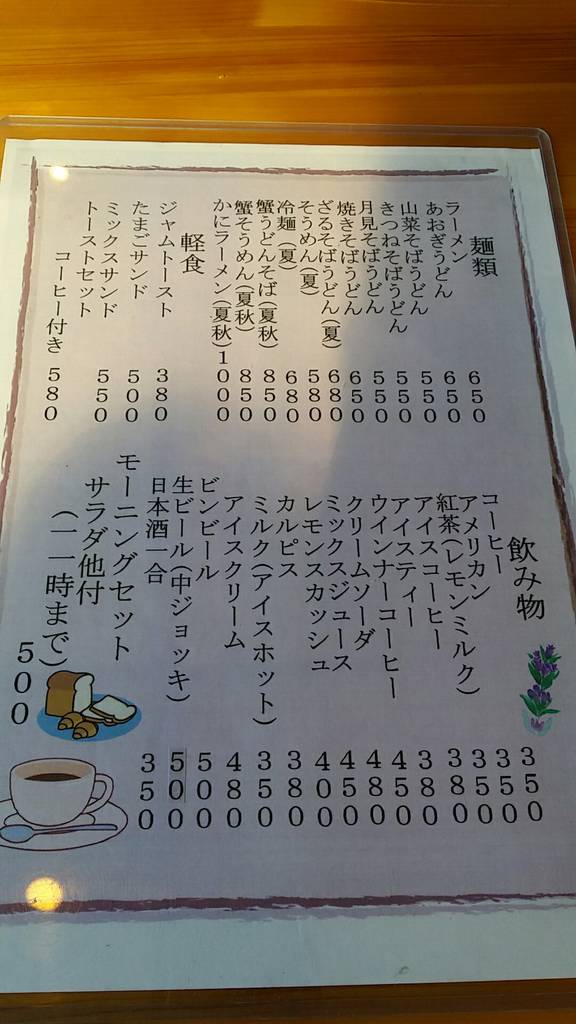 麺類
ラーメン 650
あおぎうどん 650
山菜そばうどん 550
きつねそばうどん 550
月見そばうどん 550
焼きそばうどん 650
ざるそばうどん(夏) 680
そうめん(夏) 580
冷麺(夏) 680
蟹うどんそば(夏秋) 850
蟹そうめん(夏秋) 850
かにラーメン(夏秋) 1000
軽食
ジャムトースト 380
たまごサンド 500
ミックスサンド 550
トーストセット
コーヒー付き 580
飲み物
コーヒー 350
アメリカン 350
紅茶(レモンミルク) 350
アイスコーヒー 380
アイスティー 380
ウインナーコーヒー 450
クリームソーダ 480
ミックスジュース 450
レモンスカッシュ 400
カルピス 380
ミルク(アイスホット) 350
アイスクリーム 480
ビンビール 500
生ビール(中ジョッキ) 500
日本酒一合 350
モーニングセット
サラダ他付
(一一時まで) 500